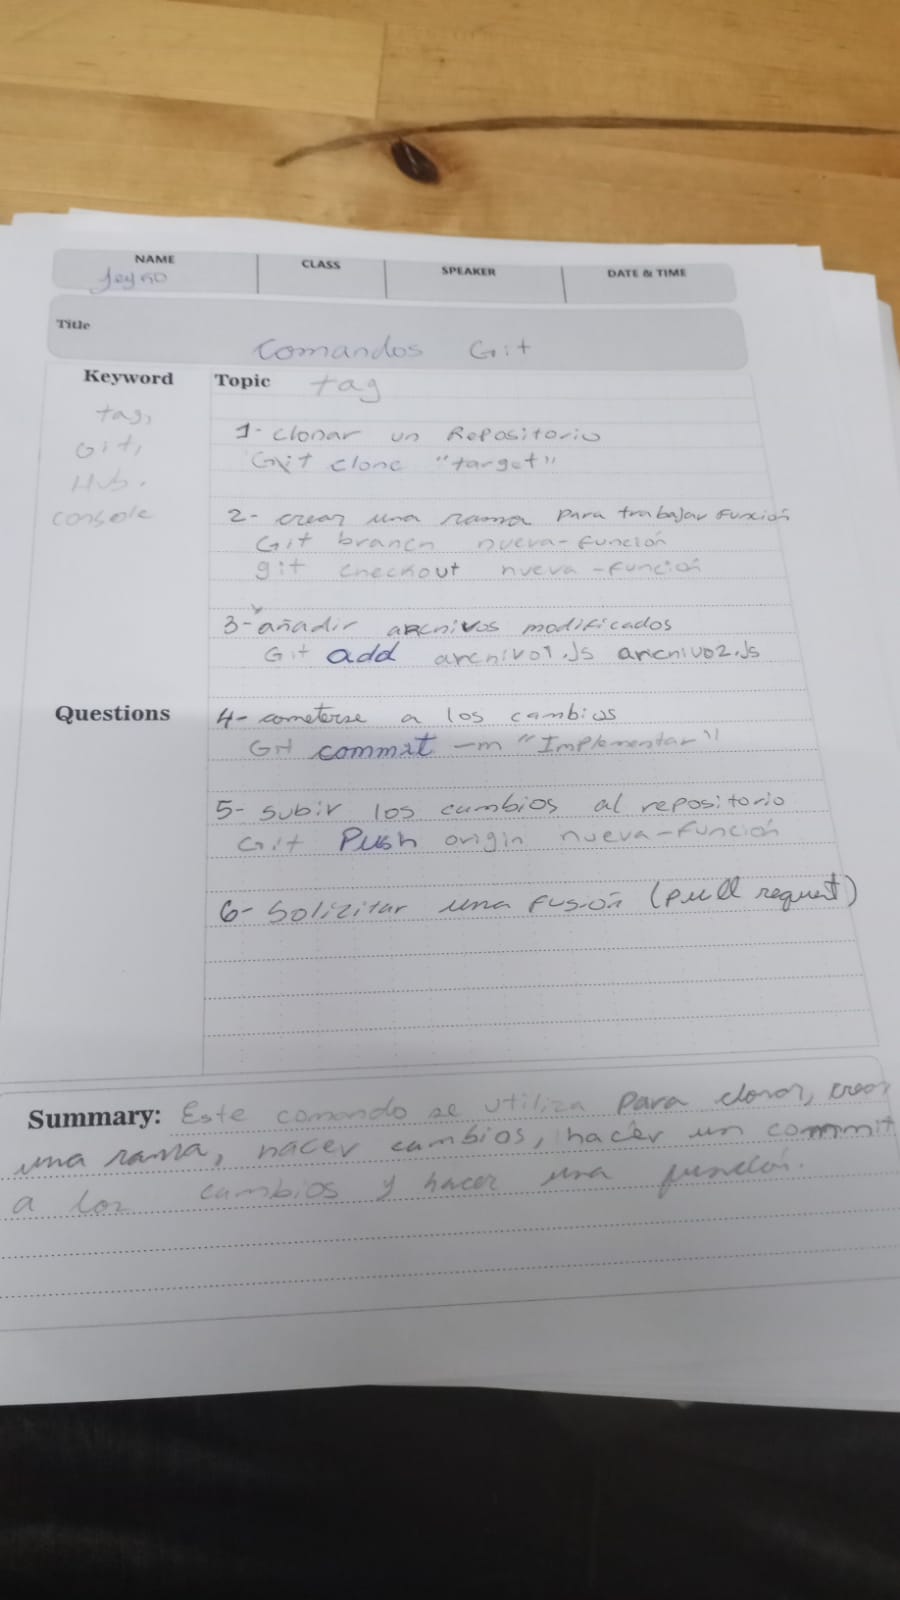 NAME CLASS SPEAKER DATE & TIME
Title
Comandos Git
Keyword Topic tag
tag,
Git,
Hub.
console
1- clonar un Repositorio
Git clone "target"
2- crear una rama para trabajar función
Git branch nueva-función
git checkout nueva-función
3- añadir archivos modificados
Git add archivo1.js archivo2.js
Questions
4- cometerse a los cambios
Git commit -m "Implementar"
5- subir los cambios al repositorio
Git Push origin nueva-función
6- Solizitar una fusión (pull request)
Summary: Este comando se utiliza para clonar, crear
una rama, hacer cambios, hacer un commit
a los cambios y hacer una función.